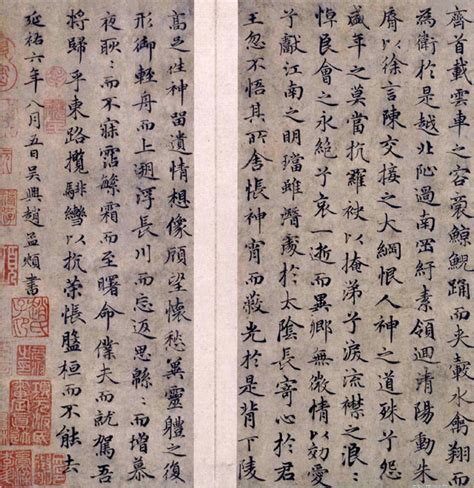 齊首載雲車之容裔鯨鯢踊而夾轂水禽翔而
為衛於是越北沚過南岡紆素領迴清陽動朱
脣以徐言陳交接之大綱恨人神之道殊兮怨
盛年之莫當抗羅袂以掩涕兮淚流襟之浪〻
悼良會之永絶兮哀一逝而異鄉無微情以効愛
兮獻江南之明璫雖潛處於太陰長寄心於君
王忽不悟其所舍悵神宵而蔽光於是背下陵
高足往神留遺情想像顧望懷愁冀靈體之復
形御輕舟而上遡浮長川而忘返思緜〻而增慕
夜耿〻而不寐霑繁霜而至曙命僕夫而就駕吾
將歸乎東路攬騑轡以抗策悵盤桓而不能去
延祐六年八月五日吳興趙孟頫書